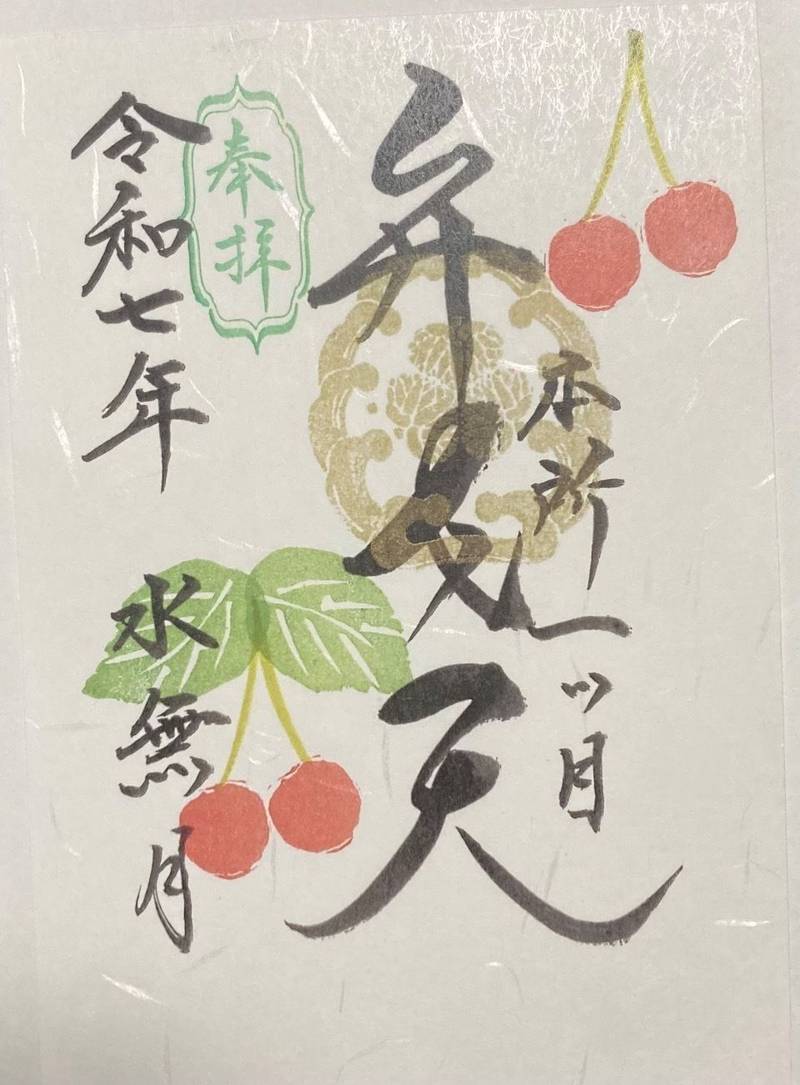 本所一ツ目
弁財天
奉拝
令和七年
水無月